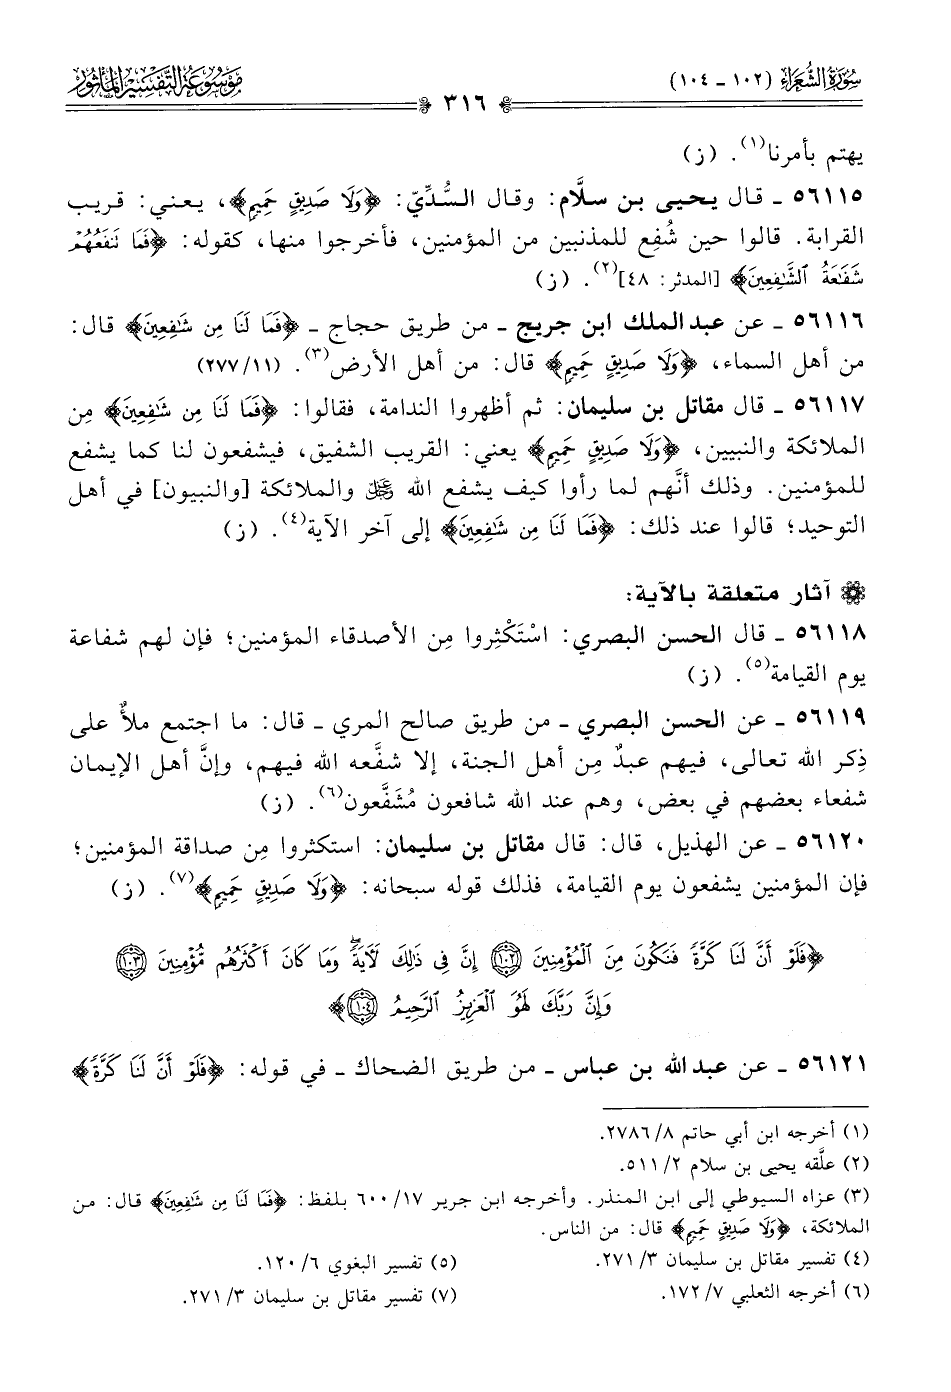 سُورَةُ الشُّعَرَاء (١٠٢ - ١٠٤)
٣١٦
مَوْسُوعَةُ التَّفْسِيرِ المَأْثُور
يهتم بأمرنا(١). (ز)
٥٦١١٥ - قال يحيى بن سلَّام: وقال السُّدِّيّ: ﴿وَلَا صَدِيقٍ حَمِيمٍ﴾، يعني: قريب
القرابة. قالوا حين شُفِع للمذنبين من المؤمنين، فأخرجوا منها، كقوله: ﴿فَمَا نَنفَعُهُمْ
شَفَٰعَةُ ٱلشَّٰفِعِينَ﴾ [المدثر: ٤٨](٢). (ز)
٥٦١١٦ - عن عبد الملك ابن جريج - من طريق حجاج - ﴿فَمَا لَنَا مِن شَٰفِعِينَ﴾ قال:
من أهل السماء، ﴿وَلَا صَدِيقٍ حَمِيمٍ﴾ قال: من أهل الأرض(٣). (١١/ ٢٧٧)
٥٦١١٧ - قال مقاتل بن سليمان: ثم أظهروا الندامة، فقالوا: ﴿فَمَا لَنَا مِن شَٰفِعِينَ﴾ مِن
الملائكة والنبيين، ﴿وَلَا صَدِيقٍ حَمِيمٍ﴾ يعني: القريب الشفيق، فيشفعون لنا كما يشفع
للمؤمنين. وذلك أنَّهم لما رأوا كيف يشفع الله ﷻ والملائكة [والنبيون] في أهل
التوحيد؛ قالوا عند ذلك: ﴿فَمَا لَنَا مِن شَٰفِعِينَ﴾ إلى آخر الآية(٤). (ز)
آثار متعلقة بالآية:
٥٦١١٨ - قال الحسن البصري: اسْتَكْثِروا مِن الأصدقاء المؤمنين؛ فإن لهم شفاعة
يوم القيامة(٥). (ز)
٥٦١١٩ - عن الحسن البصري - من طريق صالح المري - قال: ما اجتمع ملأٌ على
ذِكر الله تعالى، فيهم عبدٌ مِن أهل الجنة، إلا شفَّعه الله فيهم، وإنَّ أهل الإيمان
شفعاء بعضهم في بعض، وهم عند الله شافعون مُشَفَّعون(٦). (ز)
٥٦١٢٠ - عن الهذيل، قال: قال مقاتل بن سليمان: استكثروا مِن صداقة المؤمنين؛
فإن المؤمنين يشفعون يوم القيامة، فذلك قوله سبحانه: ﴿وَلَا صَدِيقٍ حَمِيمٍ﴾(٧). (ز)
﴿فَلَوْ أَنَّ لَنَا كَرَّةً فَنَكُونَ مِنَ ٱلْمُؤْمِنِينَ ١٠٢ إِنَّ فِى ذَٰلِكَ لَأٓيَةً ۖ وَمَا كَانَ أَكْثَرُهُم مُّؤْمِنِينَ ١٠٣
وَإِنَّ رَبَّكَ لَهُوَ ٱلْعَزِيزُ ٱلرَّحِيمُ ١٠٤﴾
٥٦١٢١ - عن عبد الله بن عباس - من طريق الضحاك - في قوله: ﴿فَلَوْ أَنَّ لَنَا كَرَّةً﴾
(١) أخرجه ابن أبي حاتم ٨/ ٢٧٨٦.
(٢) علَّقه يحيى بن سلام ٢/ ٥١١.
(٣) عزاه السيوطي إلى ابن المنذر. وأخرجه ابن جرير ١٧/ ٦٠٠ بلفظ: ﴿فَمَا لَنَا مِن شَٰفِعِينَ﴾ قال: من
الملائكة، ﴿وَلَا صَدِيقٍ حَمِيمٍ﴾ قال: من الناس.
(٤) تفسير مقاتل بن سليمان ٣/ ٢٧١.
(٥) تفسير البغوي ٦/ ١٢٠.
(٦) أخرجه الثعلبي ٧/ ١٧٢.
(٧) تفسير مقاتل بن سليمان ٣/ ٢٧١.